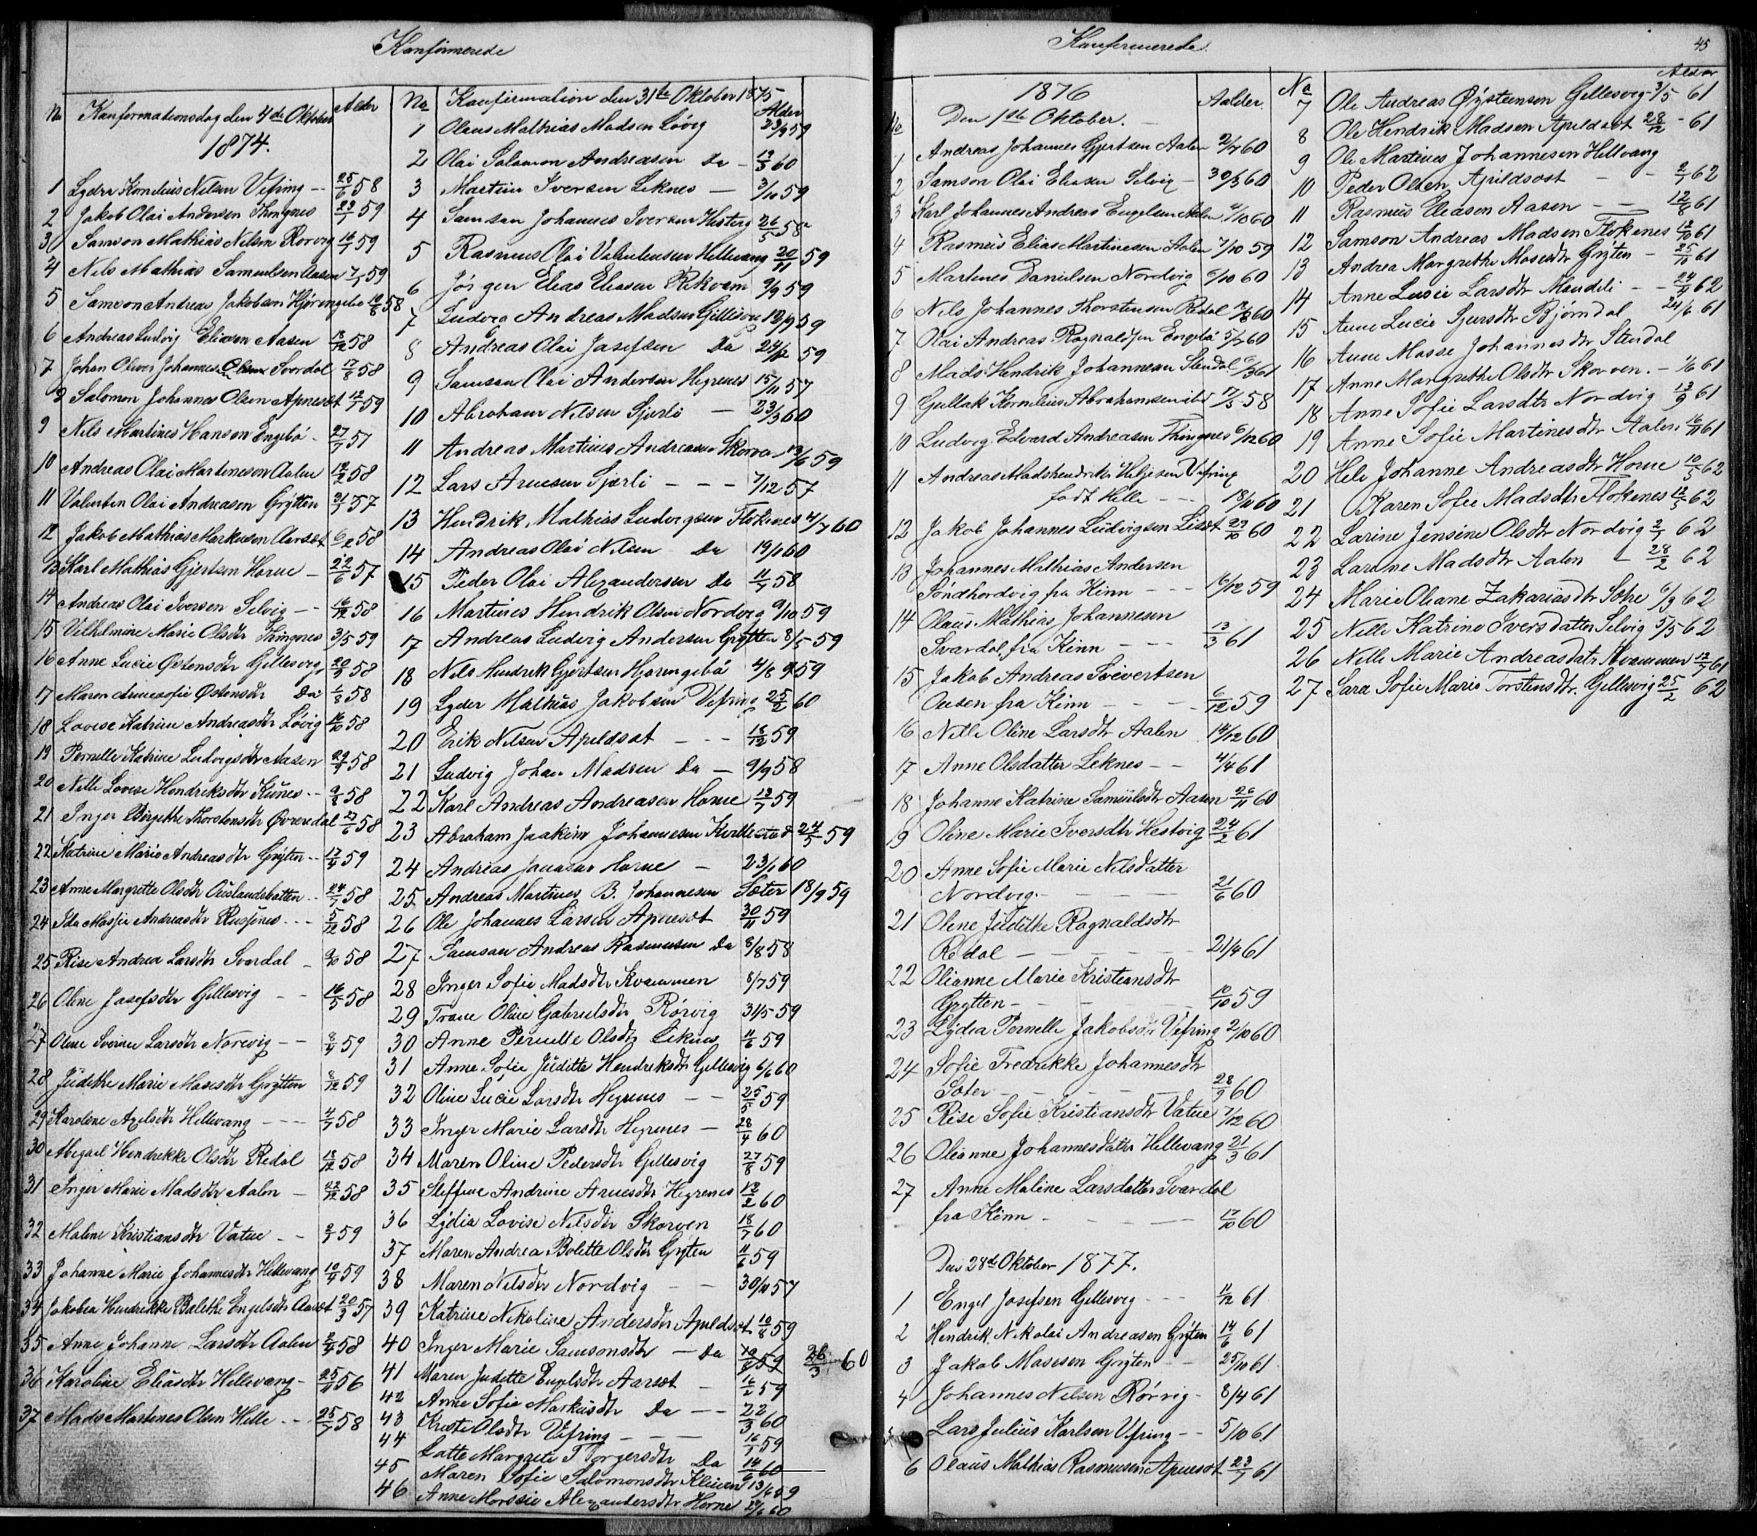 Konfirmerede
No Konfirmationsdag den 4de Oktober Alder
1874.
1 Lydir Kornelius Nilsen Vefring 25/5 58
2 Jakob Olai Andersen Thingnes 23/1 59
3 Samson Mathias Nilsen Rørvig 16/7 59
4 Nils Mathias Samuelsen Aasen 7/1 59
5 Samson Andreas Jakobsen Hjørungebø 58
6 Andreas Ludvig Eliasen Aasen 58
7 Johan Oliver Johannes Olsen Svardal 17/8 58
8 Salomon Johannes Olsen Apneset 59
9 Nils Martines Hansen Engebø 57
10 Andreas Olai Martinesen Aalen 58
11 Valentin Olai Andreasen Grytten 57
12 Jakob Mathias Markusen Aarset 58
13 Karl Mathias Gjertsen Horne 22/6 57
14 Andreas Olai Iversen Selvig 58
15 Vilhelmine Marie Olsdtr Thingnes 3/5 59
16 Anne Lucie Østensdtr Gillesvig 58
17 Maren Annesofie Østensdtr Do 58
18 Lovise Katrine Andreasdtr Løvig 58
19 Pernelle Katrine Ludvigsdtr Aasen 58
20 Nille Lovise Hendriksdtr Kunes 58
21 Inger Birgitte Thorstensdtr Øvrevedal 27/6 58
22 Katrine Marie Andreasdtr Gryten 59
23 Anne Margrette Olsdtr Auslandsbotten 58
24 Ida Massie Andreasdtr 58
25 Rise Andrea Larsdtr Svardal 58
26 Oline Josefsdtr Gillesvig 16/5 58
27 Oline Larsdtr Norvig 59
28 Judithe Marie Mosesdtr Grytten 59
29 Karolene Axelsdtr Hellevang 58
30 Abigael Hendrikke Olsdtr Redal 58
31 Inger Marie Madsdtr Aalen 58
32 Maline Kristiansdtr Vatne 59
33 Johanne Marie Johannesdtr Hellevang 59
34 Jakobea Hendrikke Bolethe Engelsdtr Aarset 20/3 57
35 Anne Johanne Larsdtr Aalen 58
36 Karoline Eliasdtr Hellevang 56
37 Mads Martenes Olsen Helle 25/7 58
No Konfirmation den 31te Oktober 1875
Alder
1 Olaus Mathias Madsen Løvig 59
2 Olai Salamon Andreasen Do 60
3 Martein Iversen Leknes 3/10 59
4 Samson Johannes Iversen Hestvig 26/5 58
5 Rasmus Olai Valentensen Hellevang 20/11 59
6 Jørgen Elias Eliasen Rekvam 9/9 59
7 Ludvig Andreas Madsen Gillesvig 12/9 59
8 Andreas Olai Josefsen Do 24/12 59
9 Samson Olai Andersen Hegrenes 57
10 Abraham Nilsen Sjerli 23/3 60
11 Andreas Martines Andreasen Skorven 59
12 Lars Arnesen Sjerli 7/12 57
13 Hendrik Mathias Ludvigsen Flokenes 4/7 60
14 Andreas Olai Nilsen Do 19/1 60
15 Peder Olai Alexandersen Do 58
16 Martines Hendrik Olsen Nordvig 9/10 59
17 Andreas Ludvig Andersen Grytten 8/5 59
18 Nils Hendrik Gjertsen Hjørungebø 4/8 59
19 Lyder Mathias Jakobsen Vefring 25/2 60
20 Erik Nilsen Apeldsat 18/12 59
21 Ludvig Johan Madsen Do 9/9 58
22 Karl Andreas Andreasen Horne 59
23 Abraham Joakim Johannesen Kvellestad 24/5 59
24 Andreas Horne 23/1 60
25 Andreas Martines B. Johannesen Sæter 18/9 59
26 Ole Johannes Larsen Apneset 30/11 59
27 Samson Andreas Rasmusen Do 8/8 58
28 Inger Sofie Madsdtr Kvammen 8/7 59
29 Trane Oline Gabrielsdtr Rørvig 31/5 59
30 Anne Pernille Olsdtr Leknes 59
31 Anne Sofie Juditte Hendriksdtr Gillesvig 6/6 60
32 Oline Lucie Larsdtr Hegrenes 25/5 59
33 Inger Marie Larsdtr Hegrenes 28/4 60
34 Maren Oline Pedersdtr Gillesvig 27/8 59
35 Steffine Andrine Arnesdtr Hegrenes 60
36 Lydia Lovise Nilsdtr Skorven 18/7 60
37 Maren Andrea Bolette Olsdtr Gryten 59
38 Maren Nilsdtr Nordvig 30/10 57
39 Katrine Nikoline Andersdtr Apeldsat 10/8 59
40 Inger Marie Samsonsdtr Do 59 26/3 60
41 Maren Judette Engelsdtr Aarset 59
42 Anne Sofie Markusdtr Do 22/3 60
43 Olsdtr Vefring 59
44 Lotte Margrete Torgersdtr Do 60
45 Maren Sofie Salomonsdtr Kleiven 13/6 59
46 Anne Morssie Alexandersdtr Horne 60
Konfirmerede.
45
1876
No Den 1ste Oktober. Aalder.
1 Andreas Johannes Gjertsen Aalen 60
2 Samson Olai Eliasen Selvig 30/3 60
3 Karl Johannes Andreas Engelsen Aalen 4/10 60
4 Rasmus Elias Martinesen Aalen 7/10 59
5 Martines Danielsen Nordvig 6/10 60
6 Nils Johannes Thorstensen Redal 60
7 Olai Andreas Ragnaldsen Engebø 5/7 60
8 Mads Hendrik Johannesen Stendal 61
9 Gullak Kornelius Abrahamsen 58
10 Ludvig Edvard Andreasen Thingnes 6/12 60
11 Andreas Madshendrik Helgesen Vefring
født Helle 18/11 60
12 Jakob Johannes Ludvigsen 60
13 Johannes Mathias Andersen
Søndhordvig fra Kinn 16/12 59
14 Olaus Mathias Johannesen
Svardal fra Kinn 13/3 61
15 Jakob Andreas Sivertsen
Ousen fra Kinn 6/12 59
16 Nille Oline Larsdtr Aalen 14/12 60
17 Anne Olsdatter Leknes 4/4 61
18 Johanne Katrine Samuelsdtr Aasen 26/11 60
19 Oline Marie Iversdtr Hestvig 24/2 61
20 Anne Sofie Marie Nilsdatter
Nordvig 21/6 60
21 Oline Judithe Ragnaldsdtr
Redal 21/4 61
22 Olianne Marie Kristiansdtr
Grytten 10/10 59
23 Lydia Pernelle Jakobsdtr Vefring 2/10 60
24 Sofie Fredrikke Johannesdtr
Sæter 28/9 60
25 Rise Sofie Kristiansdtr Vatne 7/12 60
26 Oleanne Johannesdatter Hellevang 21/3 61
27 Anne Maline Larsdatter Svardal
fra Kinn 17/10 60
Den 28de Oktober 1877.
1 Engel Josefsen Gillesvig 61
2 Hendrik Nikolai Andreasen Gryten 14/6 61
3 Jakob Mosesen Gryten 25/10 61
4 Johannes Nilsen Rørvig 8/4 61
5 Lars Julius Karlsen Vefring 5/10 61
6 Olaus Mathias Rasmusen Apneset 23/7 61
No Alder
7 Ole Andreas Øysteinsen Gillesvig 3/5 61
8 Ole Hendrik Madsen Apeldsæt 28/2 61
9 Ole Martines Johannesen Hellvang
10 Peder Olsen Apeldsæt 62
11 Rasmus Eliasen Aasen 12/8 61
12 Samson Andreas Madsen Flokenes 61
13 Andrea Margrethe Mosesdtr Gryten 25/11 61
14 Anne Lucie Larsdtr Mondeli 62
15 Anne Lucie Sjursdtr Bjørndal 24/6 61
16 Anne Masse Johannesdtr Stendal
17 Anne Margrethe Olsdtr Skorven 61
18 Anne Sofie Larsdtr Nordvig 13/9 61
19 Anne Sofie Martinesdtr Aalen 16/11 61
20 Hele Johanne Andreasdtr Horne 10/5 62
21 Karen Sofie Madsdtr Flokenes 12/5 62
22 Larine Jensine Olsdtr Nordvig 62
23 Larine Madsdtr Aalen 28/2 62
24 Marie Oleane Zakariasdtr Sætre 6/3 62
25 Nille Katrine Iversdatter Selvig 5/5 62
26 Nille Marie Andreasdatr Kvammen 61
27 Sara Sofie Marie Torstensdtr Gillesvig 25/2 62